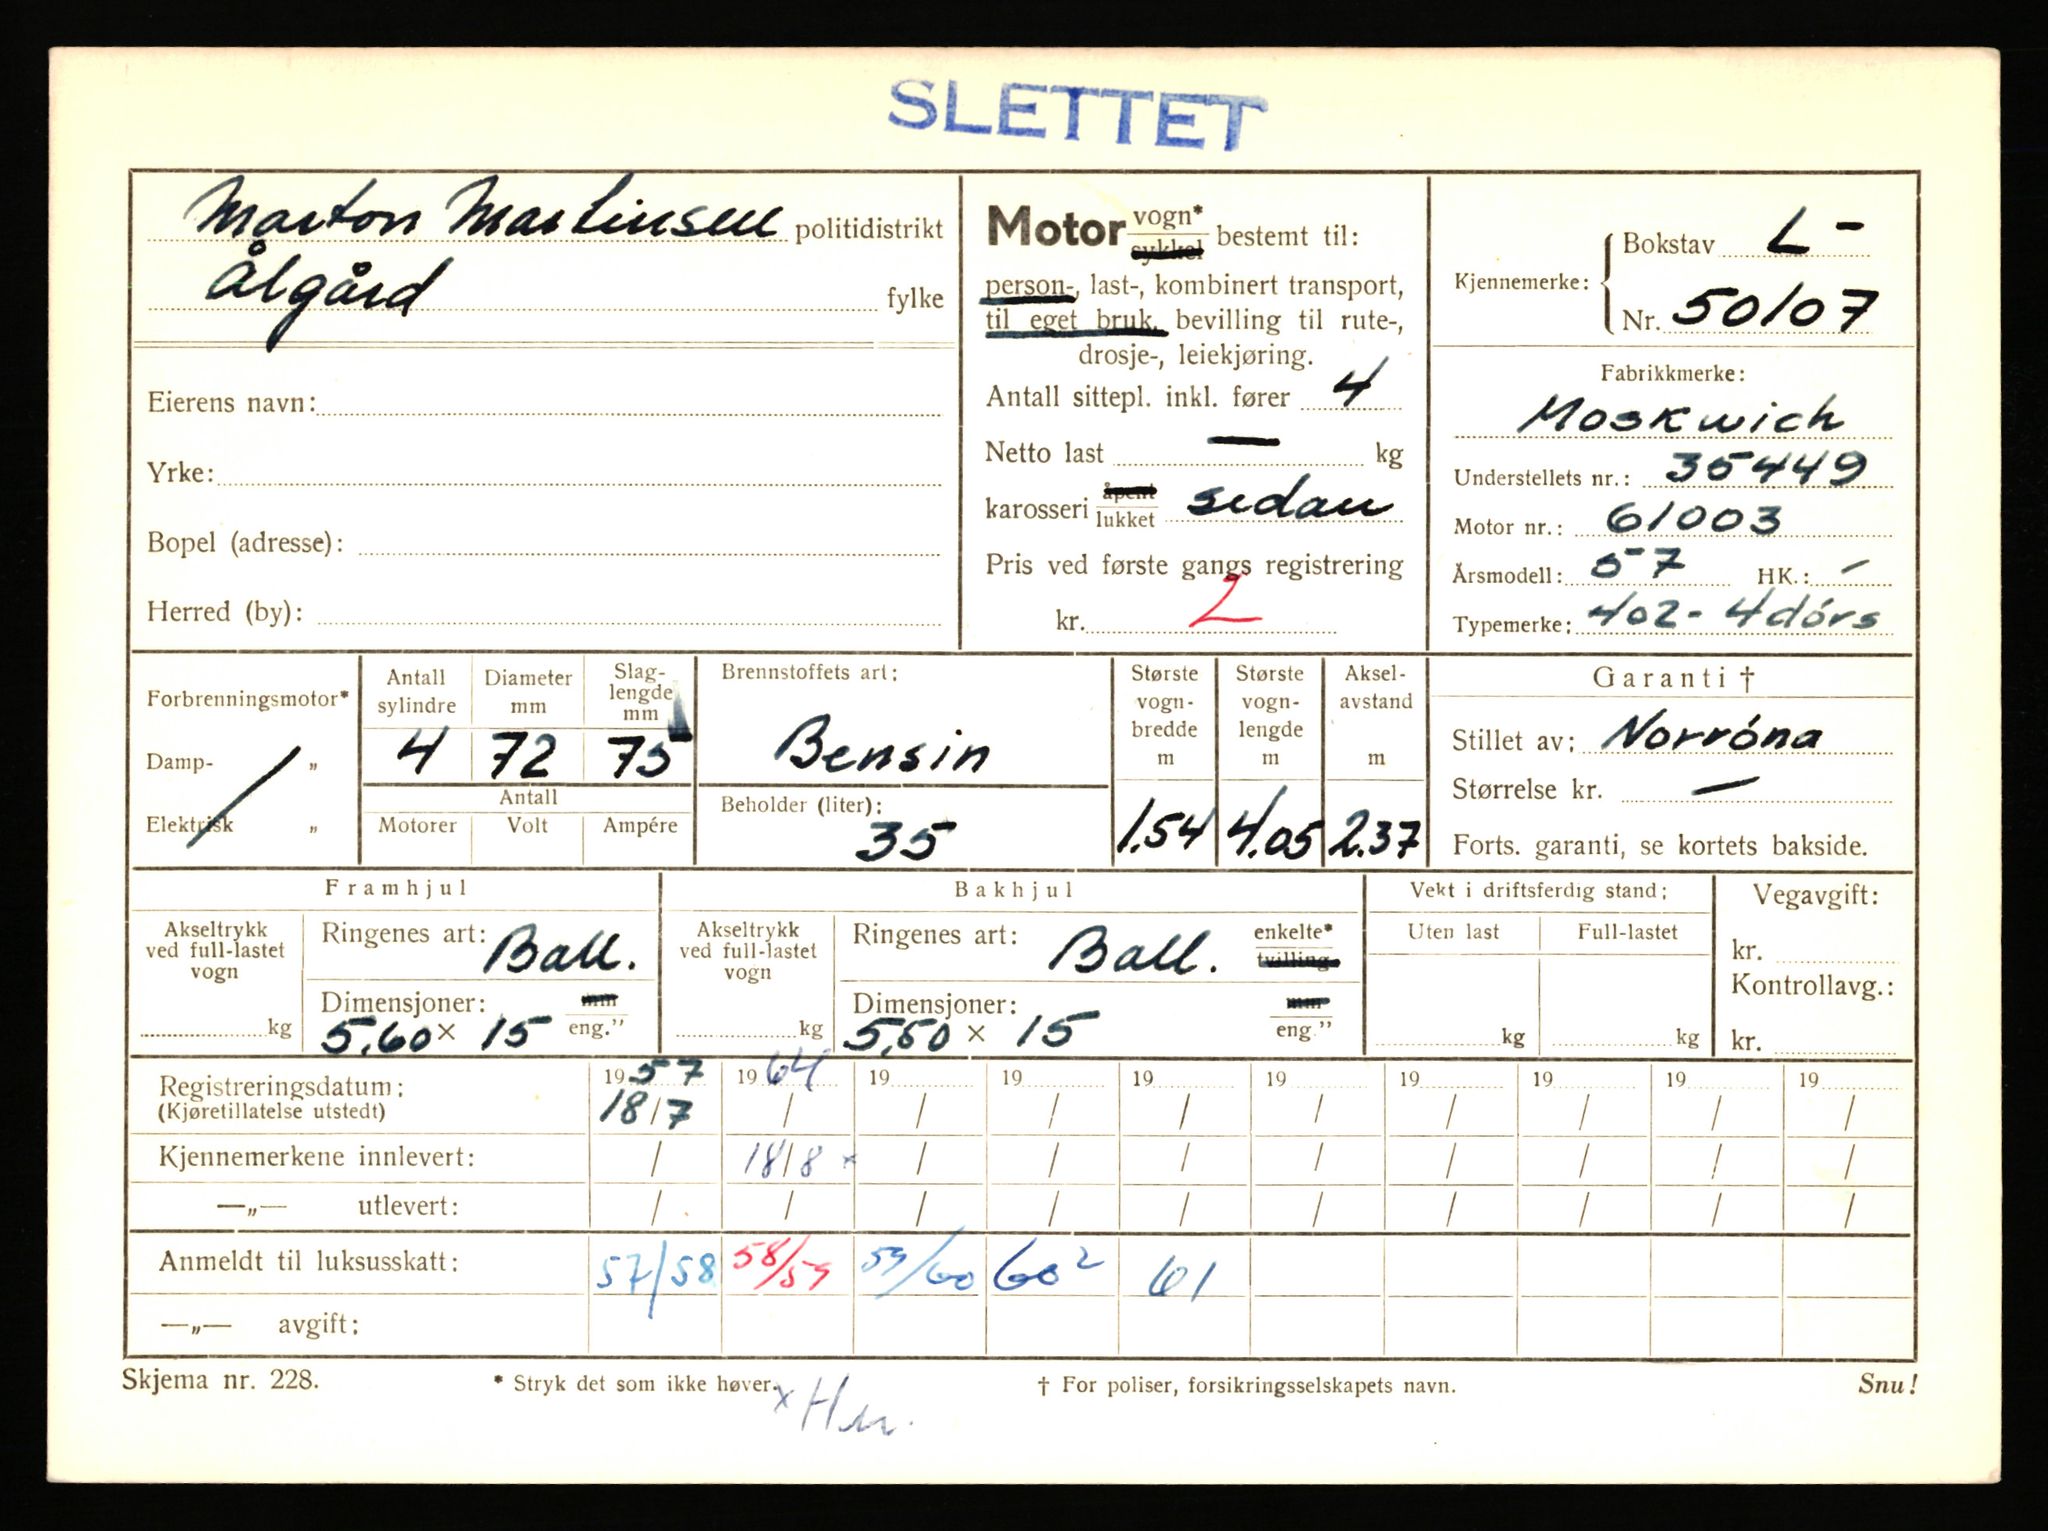 SLETTET
Marton Martinsen politidistrikt
Ålgård fylke
Eierens navn:
Yrke:
Bopel (adresse):
Herred (by):
Motor vogn*
sykkel bestemt til:
person-, last-, kombinert transport,
til eget bruk, bevilling til rute-,
drosje-, leiekjøring.
Antall sittepl. inkl. fører 4
Netto last — kg
karosseri åpent
lukket sedan
Pris ved første gangs registrering
kr. 2
Kjennemerke: { Bokstav L-
Nr. 50107
Fabrikkmerke:
Moskwich
Understellets nr.: 35449
Motor nr.: 61003
Årsmodell: 57 HK.: -
Typemerke: 402- 4dórs
Forbrenningsmotor*
Damp- „
Elektrisk „
Antall sylindre
4
Diameter mm
72
Slag-
lengde
mm
75
Antall
Motorer Volt Ampére
Brennstoffets art:
Bensin
Beholder (liter):
35
Største
vogn-
bredde
m
1.54
Største
vogn-
lengde
m
4.05
Aksel-
avstand
m
2.37
Garanti †
Stillet av: Norróna
Størrelse kr. —
Forts. garanti, se kortets bakside.
Framhjul
Akseltrykk
ved full-lastet
vogn
kg
Ringenes art: Ball.
Dimensjoner: mm
5,60 × 15 eng."
Bakhjul
Akseltrykk
ved full-lastet
vogn
kg
Ringenes art: Ball. enkelte*
tvilling
Dimensjoner: mm
5,60 × 15 eng."
Vekt i driftsferdig stand:
Uten last Full-lastet
kg kg
Vegavgift:
kr.
Kontrollavg.:
kr.
Registreringsdatum: 1957 1964 19 19 19 19 19 19 19 19
(Kjøretillatelse utstedt) 18/7 / / / / / / / / /
Kjennemerkene innlevert: / 18/8 × / / / / / / / /
—„— utlevert: / / / / / / / / / /
Anmeldt til luksusskatt: 57/58 58/59 59/60 60² 61
—„— avgift:
Skjema nr. 228. * Stryk det som ikke høver. † For poliser, forsikringsselskapets navn. Snu!